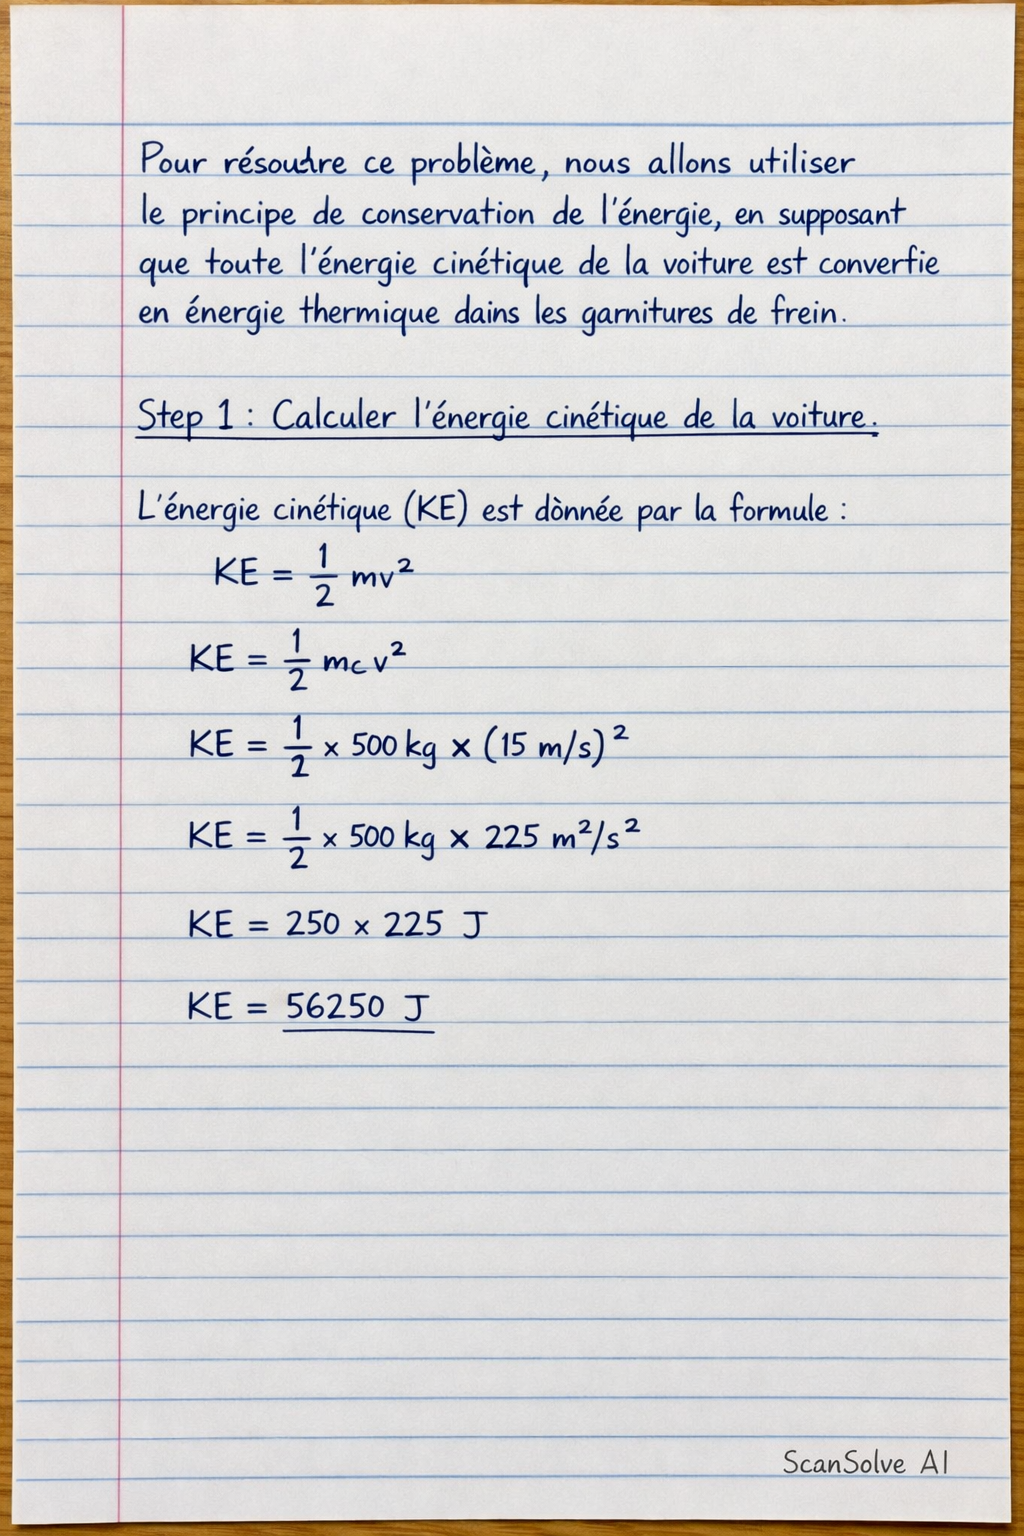 Pour résoudre ce problème, nous allons utiliser
le principe de conservation de l'énergie, en supposant
que toute l'énergie cinétique de la voiture est converfie
en énergie thermique dains les garnitures de frein.
Step 1 : Calculer l'énergie cinétique de la voiture.
L'énergie cinétique (KE) est dònnée par la formule :
KE = 1/2 mv²
KE = 1/2 mc v²
KE = 1/2 × 500 kg × (15 m/s)²
KE = 1/2 × 500 kg × 225 m²/s²
KE = 250 × 225 J
KE = 56250 J
ScanSolve AI